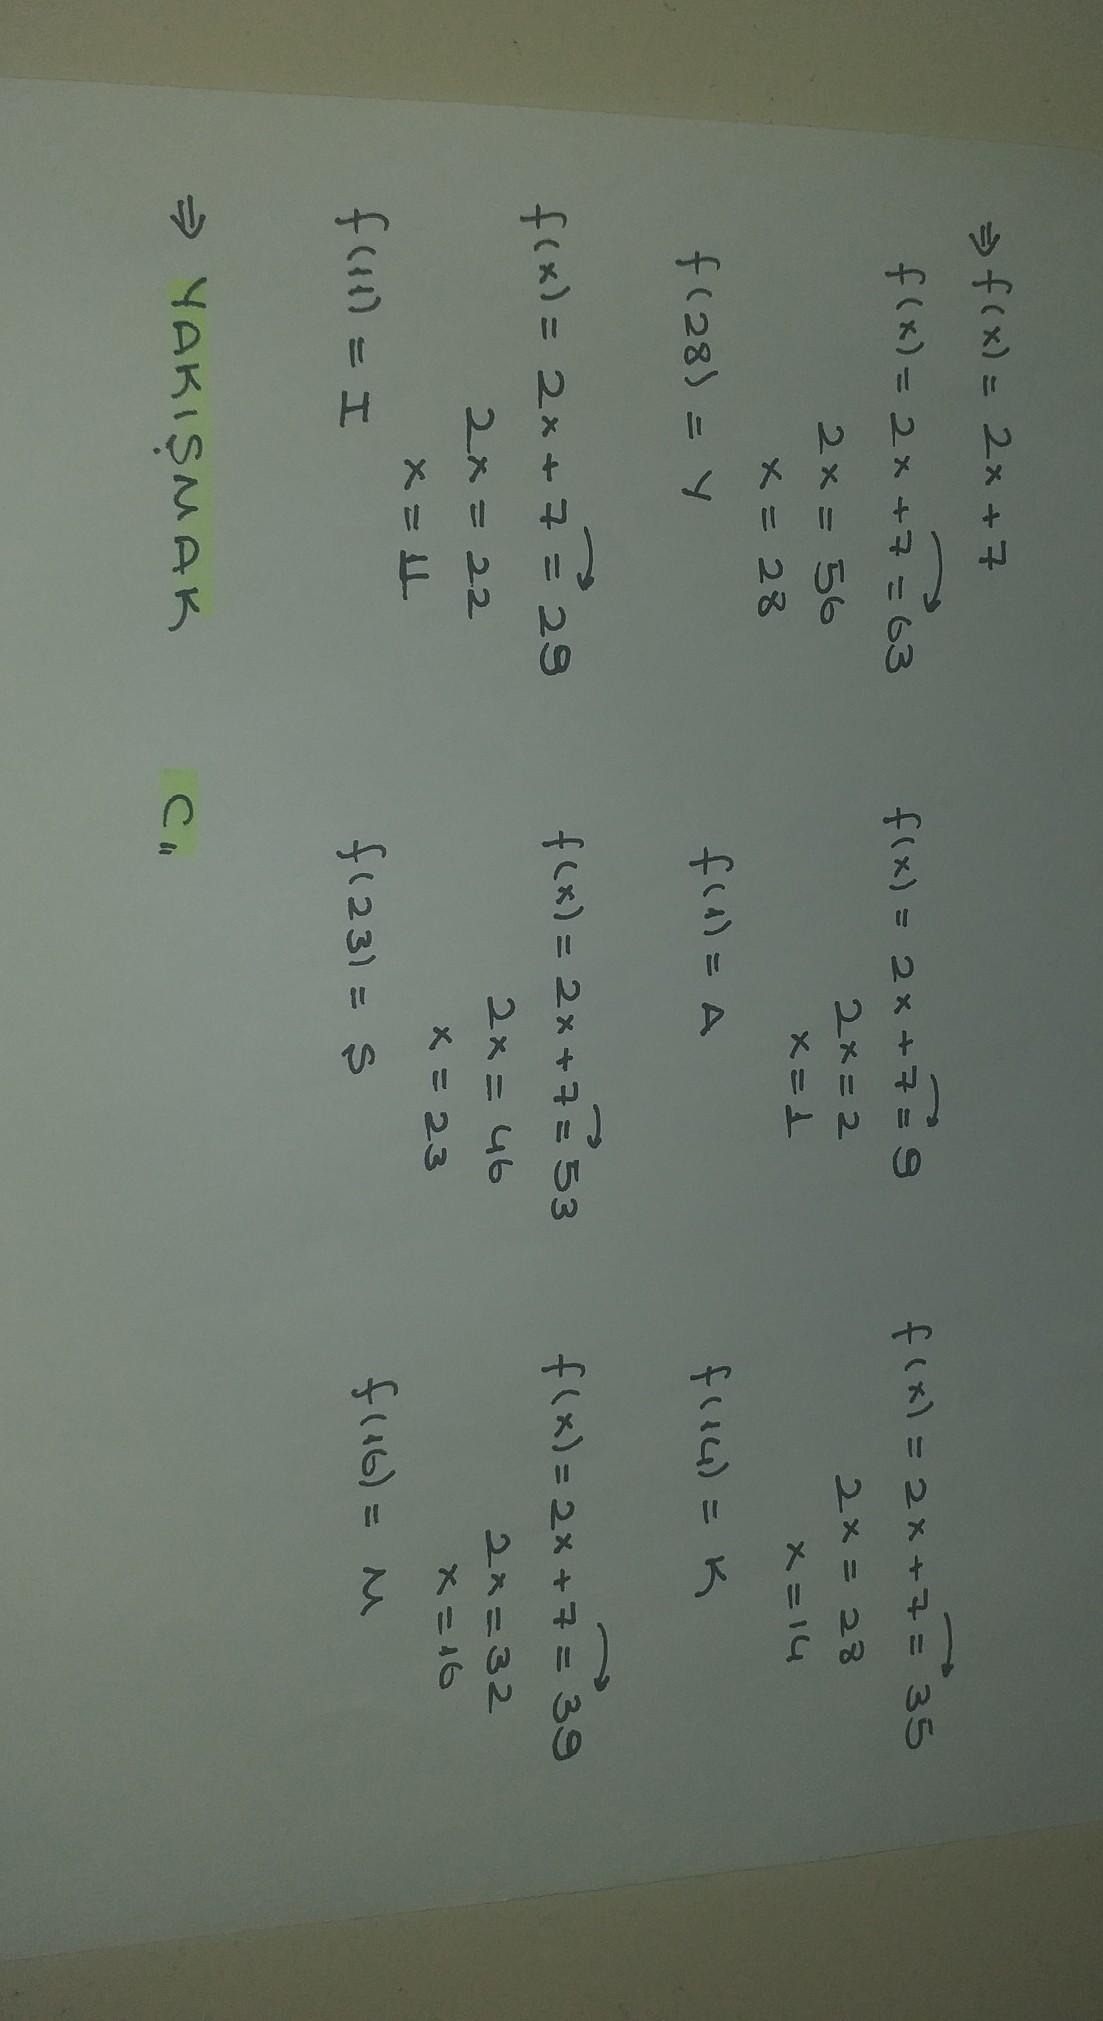 ⇒ f(x) = 2x + 7
f(x) = 2x + 7 = 63
2x = 56
x = 28
f(28) = Y
f(x) = 2x + 7 = 9
2x = 2
x = 1
f(1) = A
f(x) = 2x + 7 = 35
2x = 28
x = 14
f(14) = K
f(x) = 2x + 7 = 29
2x = 22
x = 11
f(11) = I
f(x) = 2x + 7 = 53
2x = 46
x = 23
f(23) = Ş
f(x) = 2x + 7 = 39
2x = 32
x = 16
f(16) = M
⇒ YAKIŞMAK C„